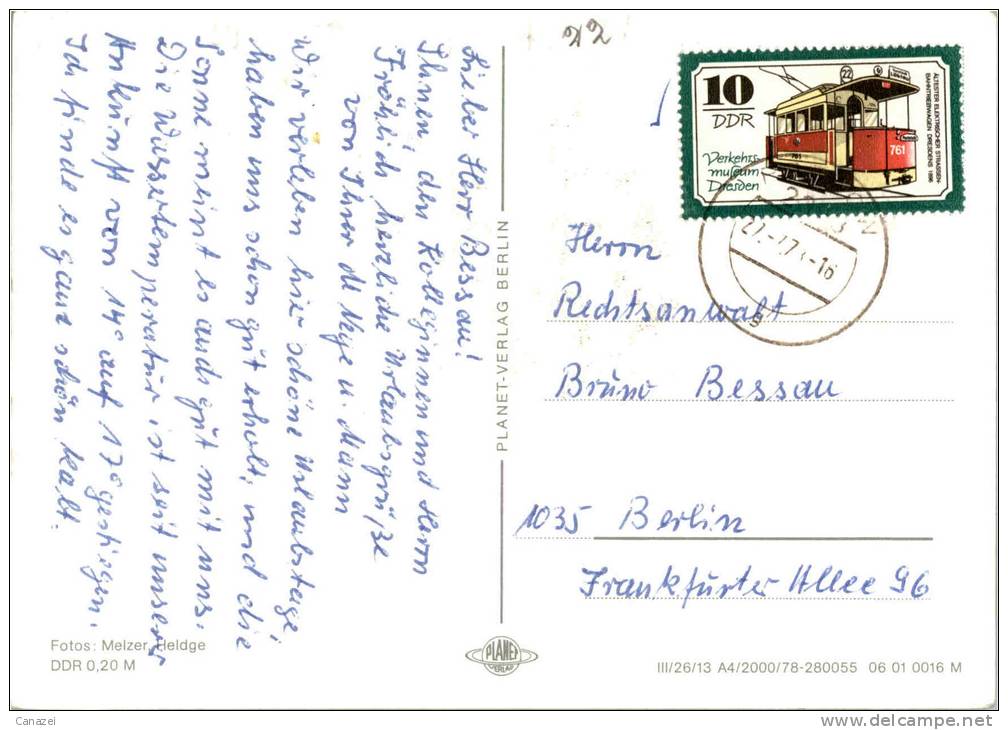 Lieber Herr Bessau!
Ihnen, den Kolleginnen und Herrn
Fröhlich herzliche Urlaubsgrüße
von Ihrer M. u. Mann
Wir verleben hier schöne Urlaubstage,
haben uns schon gut erholt, und die
Sonne meint es auch gut mit uns.
Die Wassertemperatur ist seit unserer
Ankunft von 14° auf 17° gestiegen.
Ich finde es ganz schön kalt.
Fotos: Melzer, Heldge
DDR 0,20 M
PLANET-VERLAG BERLIN
PLANET
VERLAG
22
10
DDR
Verkehrs-
museum
Dresden
22
761
761
ÄLTESTER ELEKTRISCHER STRASSEN-
BAHNTRIEBWAGEN DRESDENS 1896
Herrn
Rechtsanwalt
Bruno Bessau
1035 Berlin
Frankfurter Allee 96
III/26/13 A4/2000/78-280055 06 01 0016 M
Canazei
http://www.delcampe.net